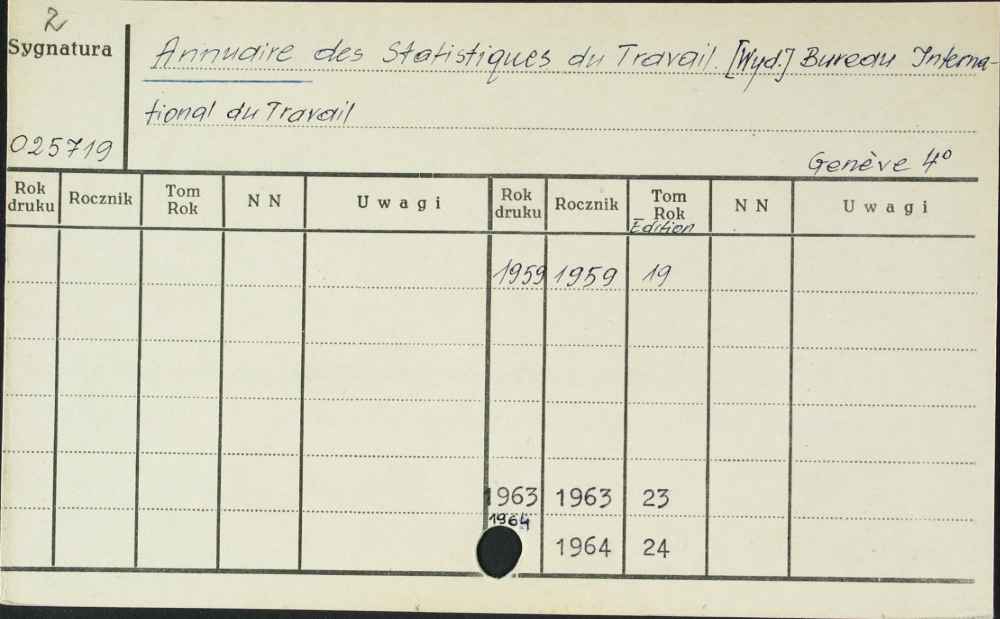 2
Sygnatura
Annuaire des Statistiques du Travail. [Wyd.] Bureau Interna-
tional du Travail
025719
Genève 4°
Rok druku Rocznik Tom Rok N N Uwagi Rok druku Rocznik Tom Rok Edition N N Uwagi
1959 1959 19
1963 1963 23
1964
1964 24